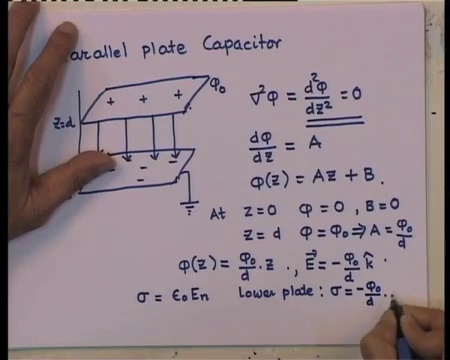 arallel plate Capacitor
+ + + φ₀
z=d
- - -
-
∇²φ = d²φ/dz² = 0
dφ/dz = A
φ(z) = Az + B.
At z=0 φ=0, B=0
z=d φ=φ₀ ⇒ A = φ₀/d
φ(z) = φ₀/d . z ., E⃗ = -φ₀/d k̂ .
σ = ε₀En Lower plate: σ = -φ₀/d ..